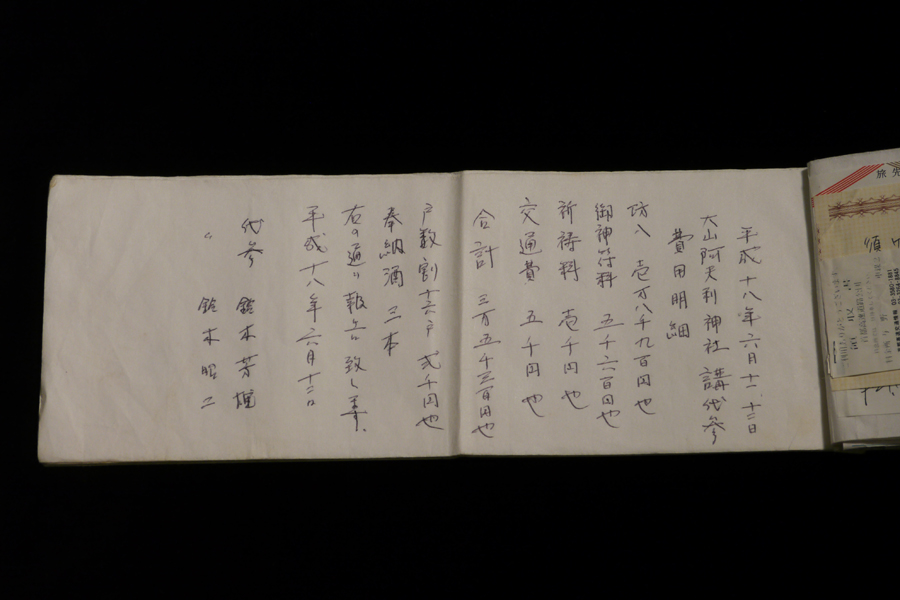 平成十八年六月十一、十二日
大山阿夫利神社 講代参
費用明細
坊入 壱万八千九百円也
御神符料 五千六百円也
祈祷料 壱千円也
交通費 五千円也
合計 三万五千三百円也
戸数割 十六戸 弐千円也
奉納酒 三本
右の通り報告致します、
平成十八年六月十二日
代参 鈴木芳雄
〃 鈴木昭二